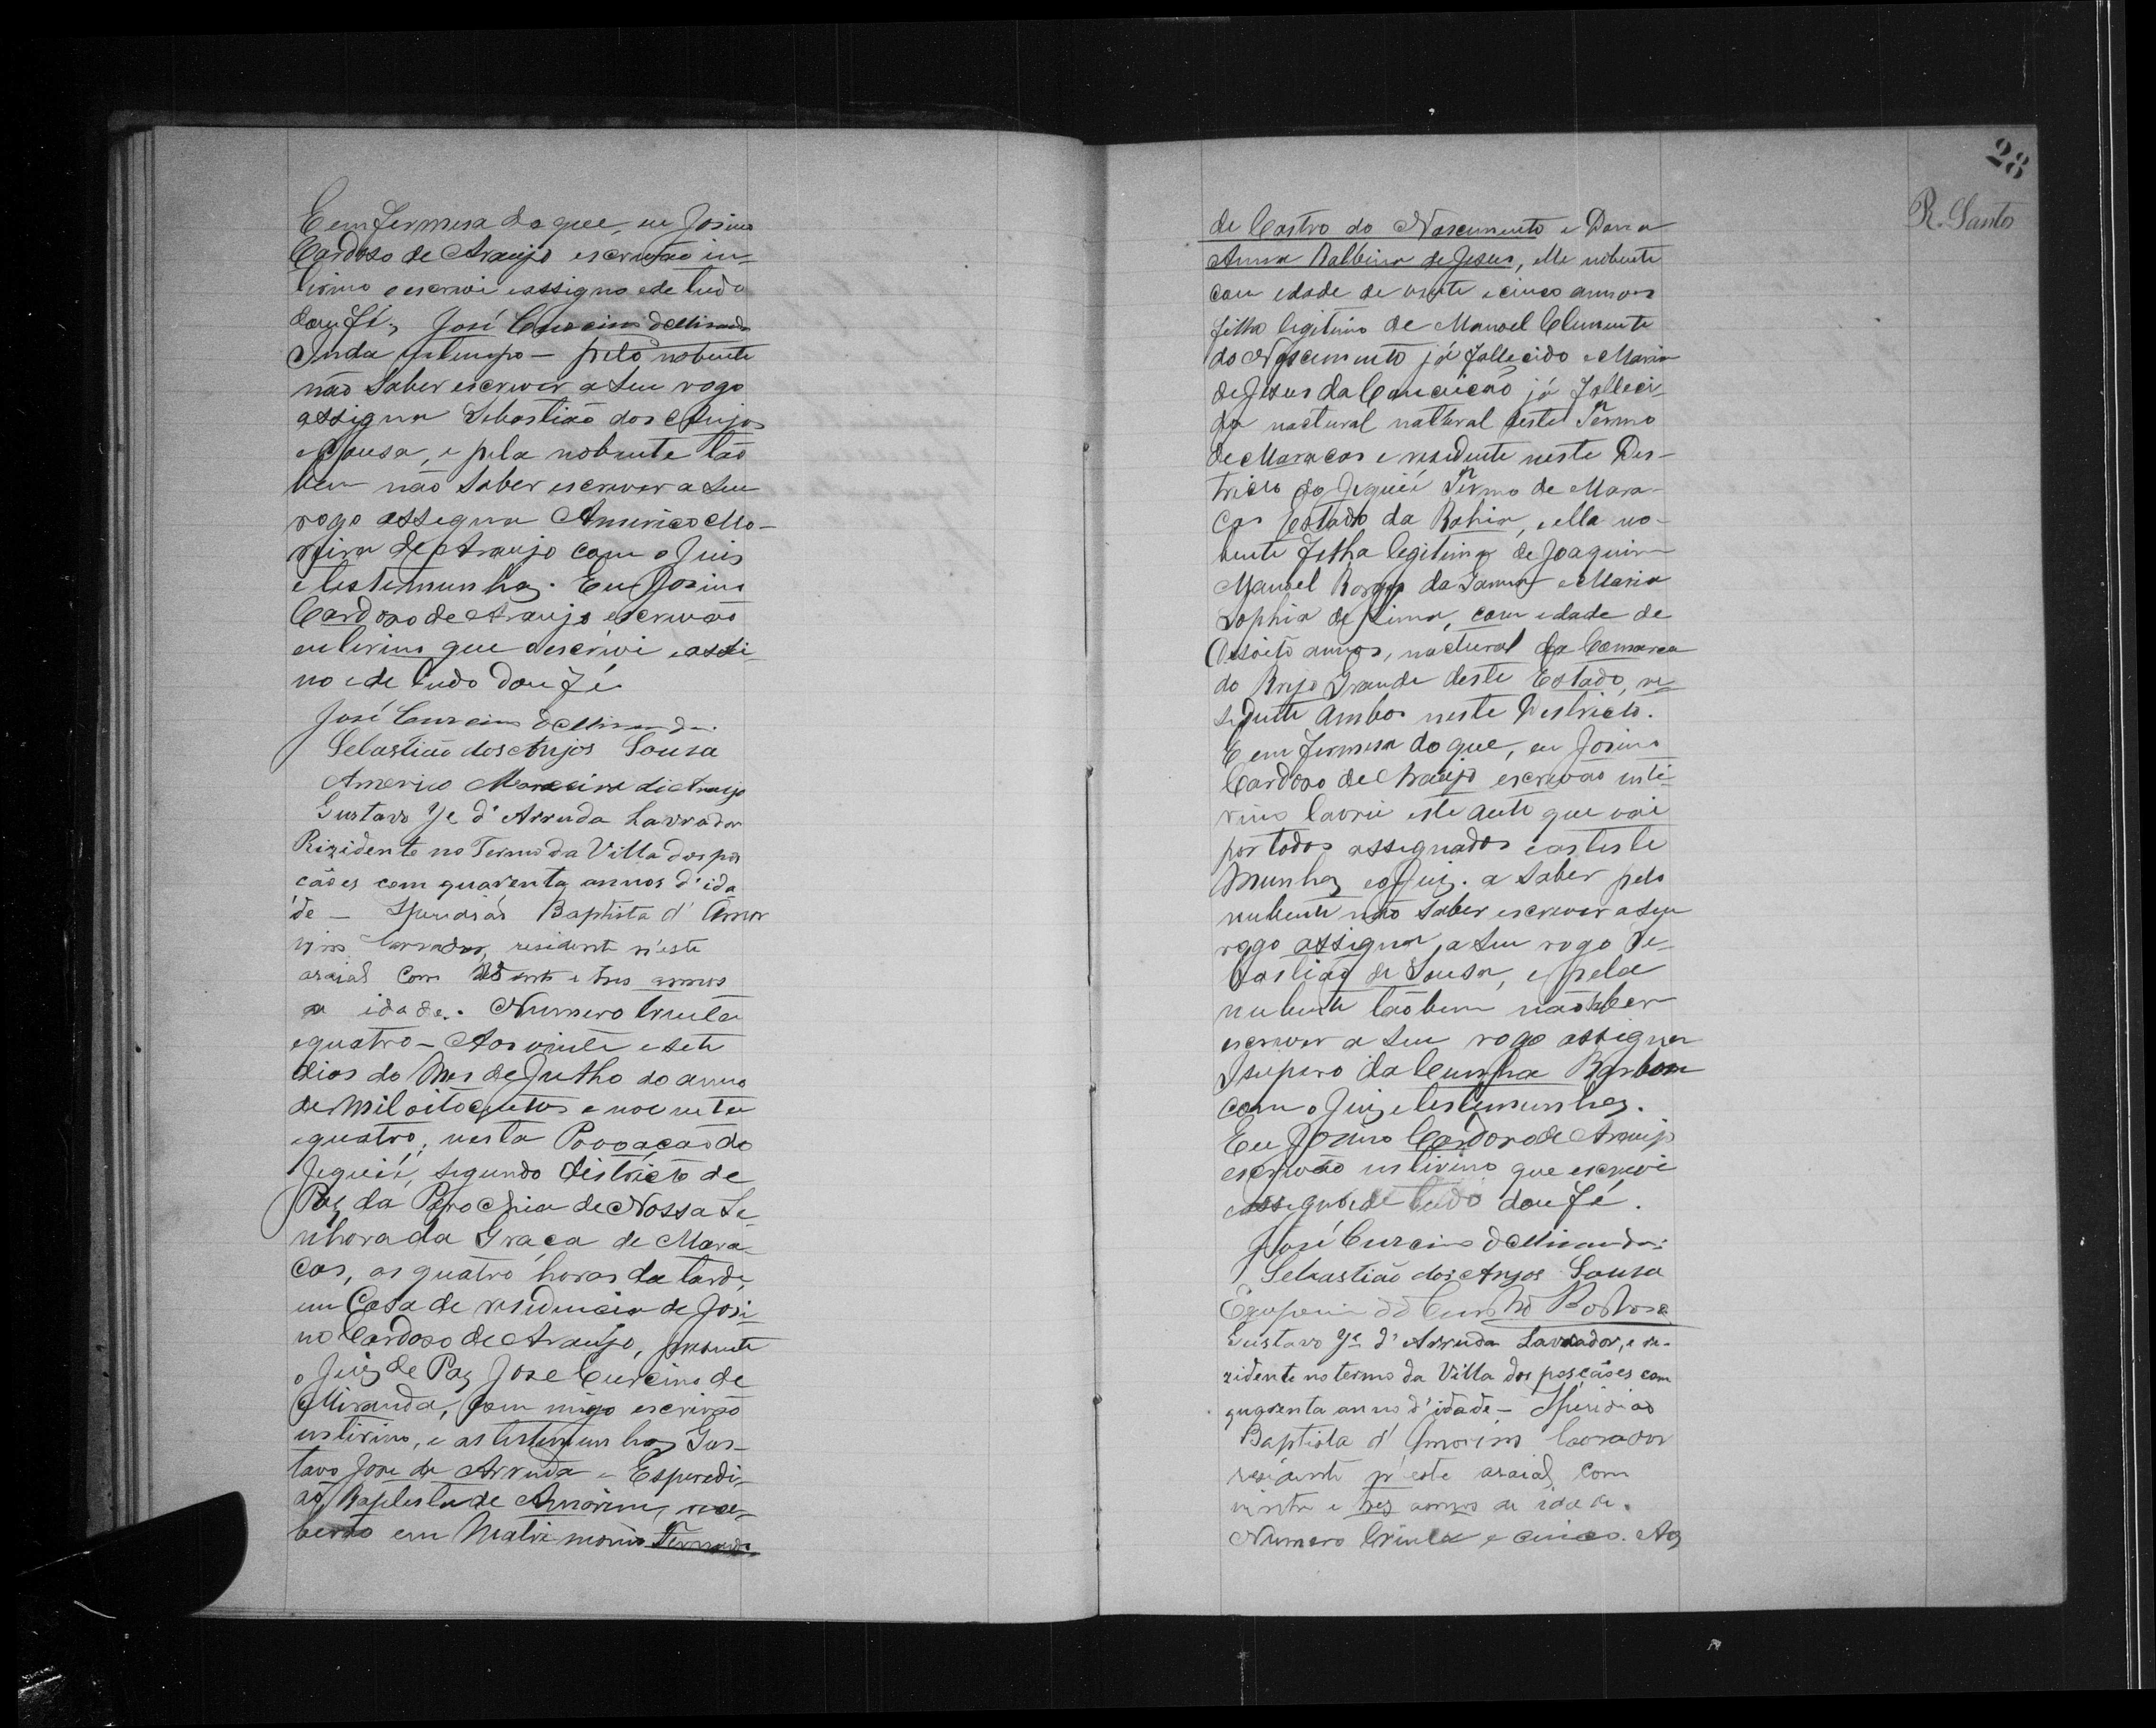 E em firmesa do que, eu Josino
Cardoso de Araujo escrivão in-
tirino o escrivi e assigno e de tudo
dou fé, José Curcino de Miranda
Inda em tempo - pelo nobente
não saber escrever a seu rogo
assigna Sebastião dos Anjos
e Sousa, e pela nobente tão
bem não saber escrever a seu
rogo assigna Americo Mo-
reira de Araujo com o Juis
e testemunhas. Eu Josino
Cardoso de Araujo escrivão
entirino que o escrivi e assi-
no e de tudo dou fé
José Curcino de Miranda.
Sebastião dos Anjos Sousa
Americo Moreira de Araujo
Gustavo Je d'Arruda Lavrador
Rizidente no Termo da Villa dos pos
cães com quarenta annos d'ida
de - Spiridião Baptista d'Amor
im lavrador, residente n'este
araial com vinte e tres annos
a idade. Numero trinta
e quatro - Aos vinte e sete
dias do Mes de Julho do anno
de mil oitocentos e noventa
e quatro, nesta Povoação do
Jequié, segundo districto de
Paz da Parochia de Nossa Se-
nhora da Graça de Mara-
cas, as quatro horas da tarde,
em Casa de residencia de Josi-
no Cardoso de Araujo, presente
o Juiz de Paz Jose Curcino de
Miranda, com migo escrivão
intirino, e as testemunhas Gus-
tavo Jose de Arruda e Esperedi-
ão Baptista de Amorim, rece-
berão em Matrimonio
de Castro do Nascimento e Dona
Anna Balbina de Jesus, elle nobente
com edade de vinte e cinco annos
filho legitimo de Manoel Clemente
do Nascimento já fallecido e Maria
de Jesus da Conceicão já falleci-
da nactural natural deste Termo
de Maracas e residente neste Des-
tricto do Jequié Termo de Mara-
cas Estado da Bahia, e ella no-
bente filha legitima de Joaquim
Manoel Borges da Gama e Maria
Sophia de Lima, com edade de
desoito annos, nactural da Comarca
do Brejo Grande deste Estado, re-
sidente ambos neste Destricto.
E em firmesa do que, eu Josino
Cardoso de Araujo escrivão inti-
rino lavrei este auto que vai
por todos assignados e as teste
munhas e o Juiz. a saber pelo
nubente não saber escrever a seu
rogo assigna, a seu rogo Se-
bastião de Sousa, e pela
nubente tãobem não saber
escrever a seu rogo assigna
da Cunha Barbosa
com o Juiz e testemunhas.
Eu Josino Cardoso de Araujo
escrivão intirino que escrevi
e assigno e de tudo dou fé.
José Curcino de Miranda.
Sebastião dos Anjos Sousa
da Cunha Barbosa
Gustavo Je d'Arruda Lavrador, e re-
zidente no termo da Villa dos poscães com
quarenta anno d'idade - Spiridião
Baptista d'Amorim lavrador
residente n'este araial com
vinte e tres annos de idade.
Numero trinta e cinco. Aos
28
R. Santos